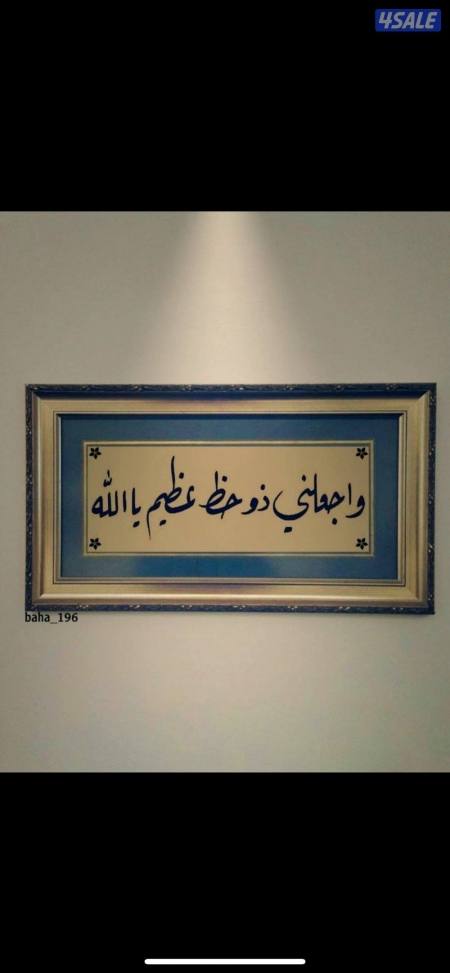 4SALE
واجعلني ذو حظ عظيم يا الله
baha_196